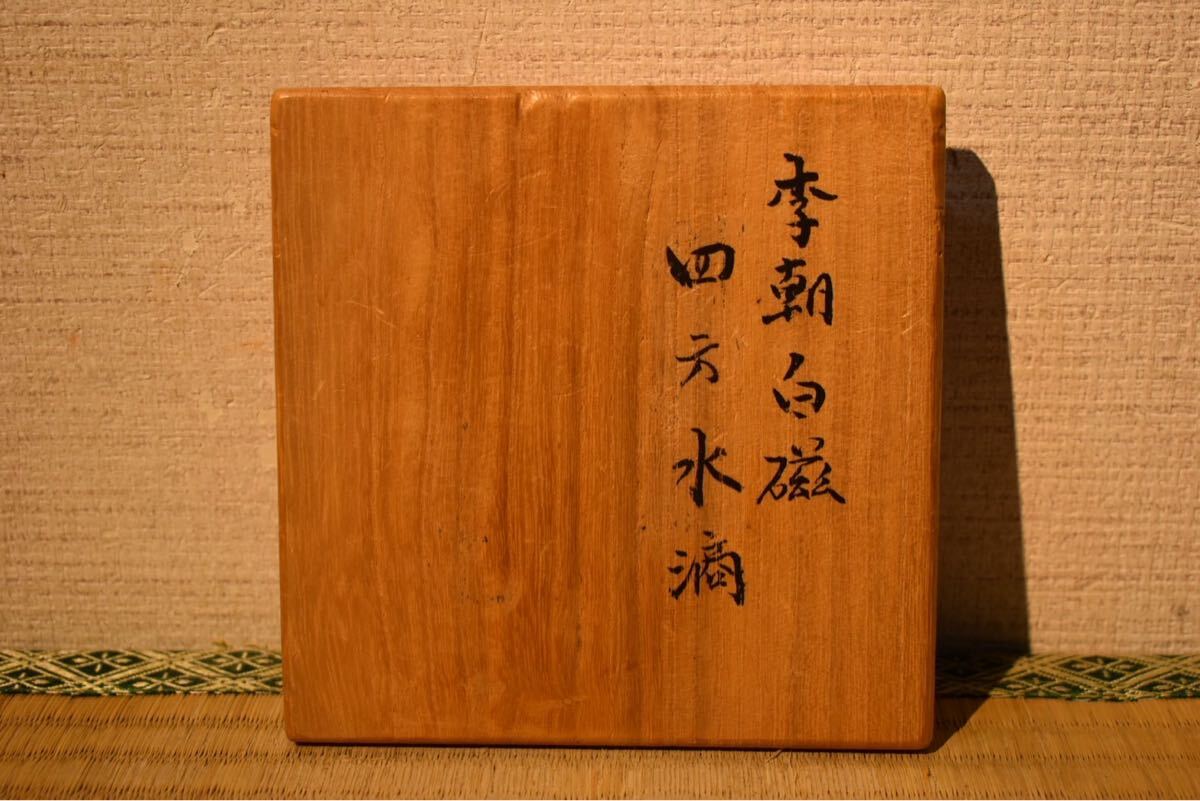 李朝白磁
四方水滴